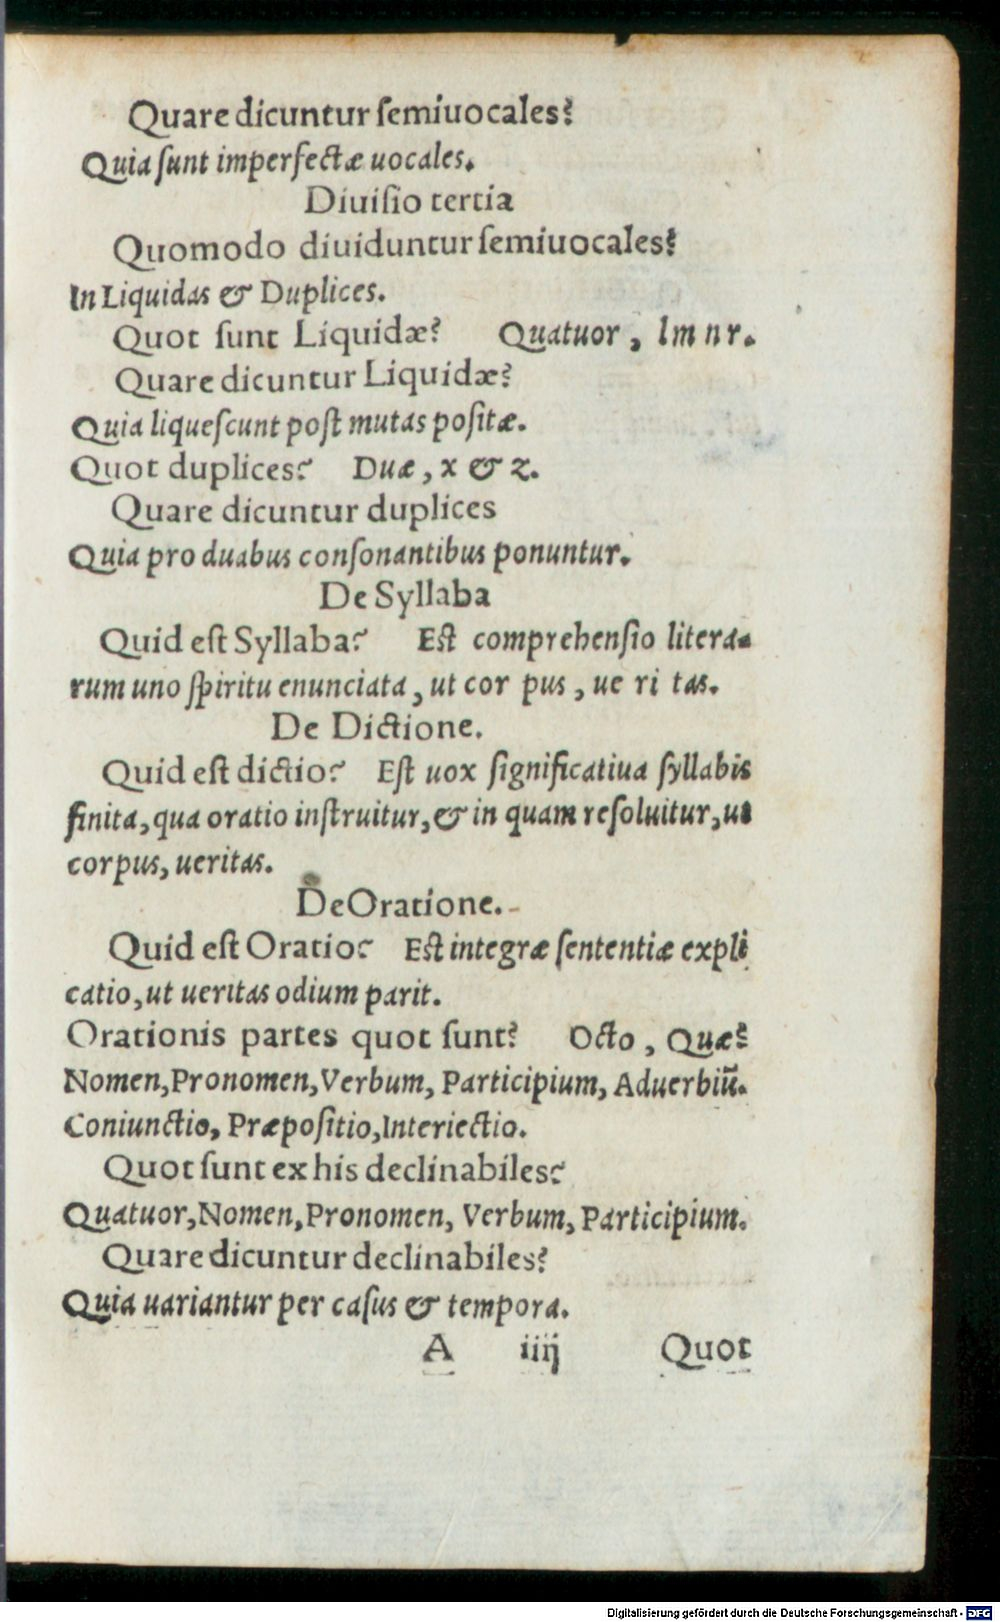 Quare dicuntur ſemiuocales?
Quia ſunt imperfectæ uocales.
Diuiſio tertia
Quomodo diuiduntur ſemiuocales?
In Liquidas & Duplices.
Quot ſunt Liquidæ? Quatuor, l m n r.
Quare dicuntur Liquidæ?
Quia liqueſcunt poſt mutas poſitæ.
Quot duplices? Duæ, x & z.
Quare dicuntur duplices
Quia pro duabus conſonantibus ponuntur.
De Syllaba
Quid eſt Syllaba? Eſt comprehenſio litera-
rum uno ſpiritu enunciata, ut cor pus, ue ri tas.
De Dictione.
Quid eſt dictio? Eſt uox ſignificatiua ſyllabis
finita, qua oratio inſtruitur, & in quam reſoluitur, ut
corpus, ueritas.
De Oratione.
Quid eſt Oratio? Eſt integræ ſententiæ expli
catio, ut ueritas odium parit.
Orationis partes quot ſunt? Octo, Quæ?
Nomen, Pronomen, Verbum, Participium, Aduerbiū.
Coniunctio, Præpoſitio, Interiectio.
Quot ſunt ex his declinabiles?
Quatuor, Nomen, Pronomen, Verbum, Participium.
Quare dicuntur declinabiles?
Quia uariantur per caſus & tempora.
A iiij Quot
Digitalisierung gefördert durch die Deutsche Forschungsgemeinschaft - DFG